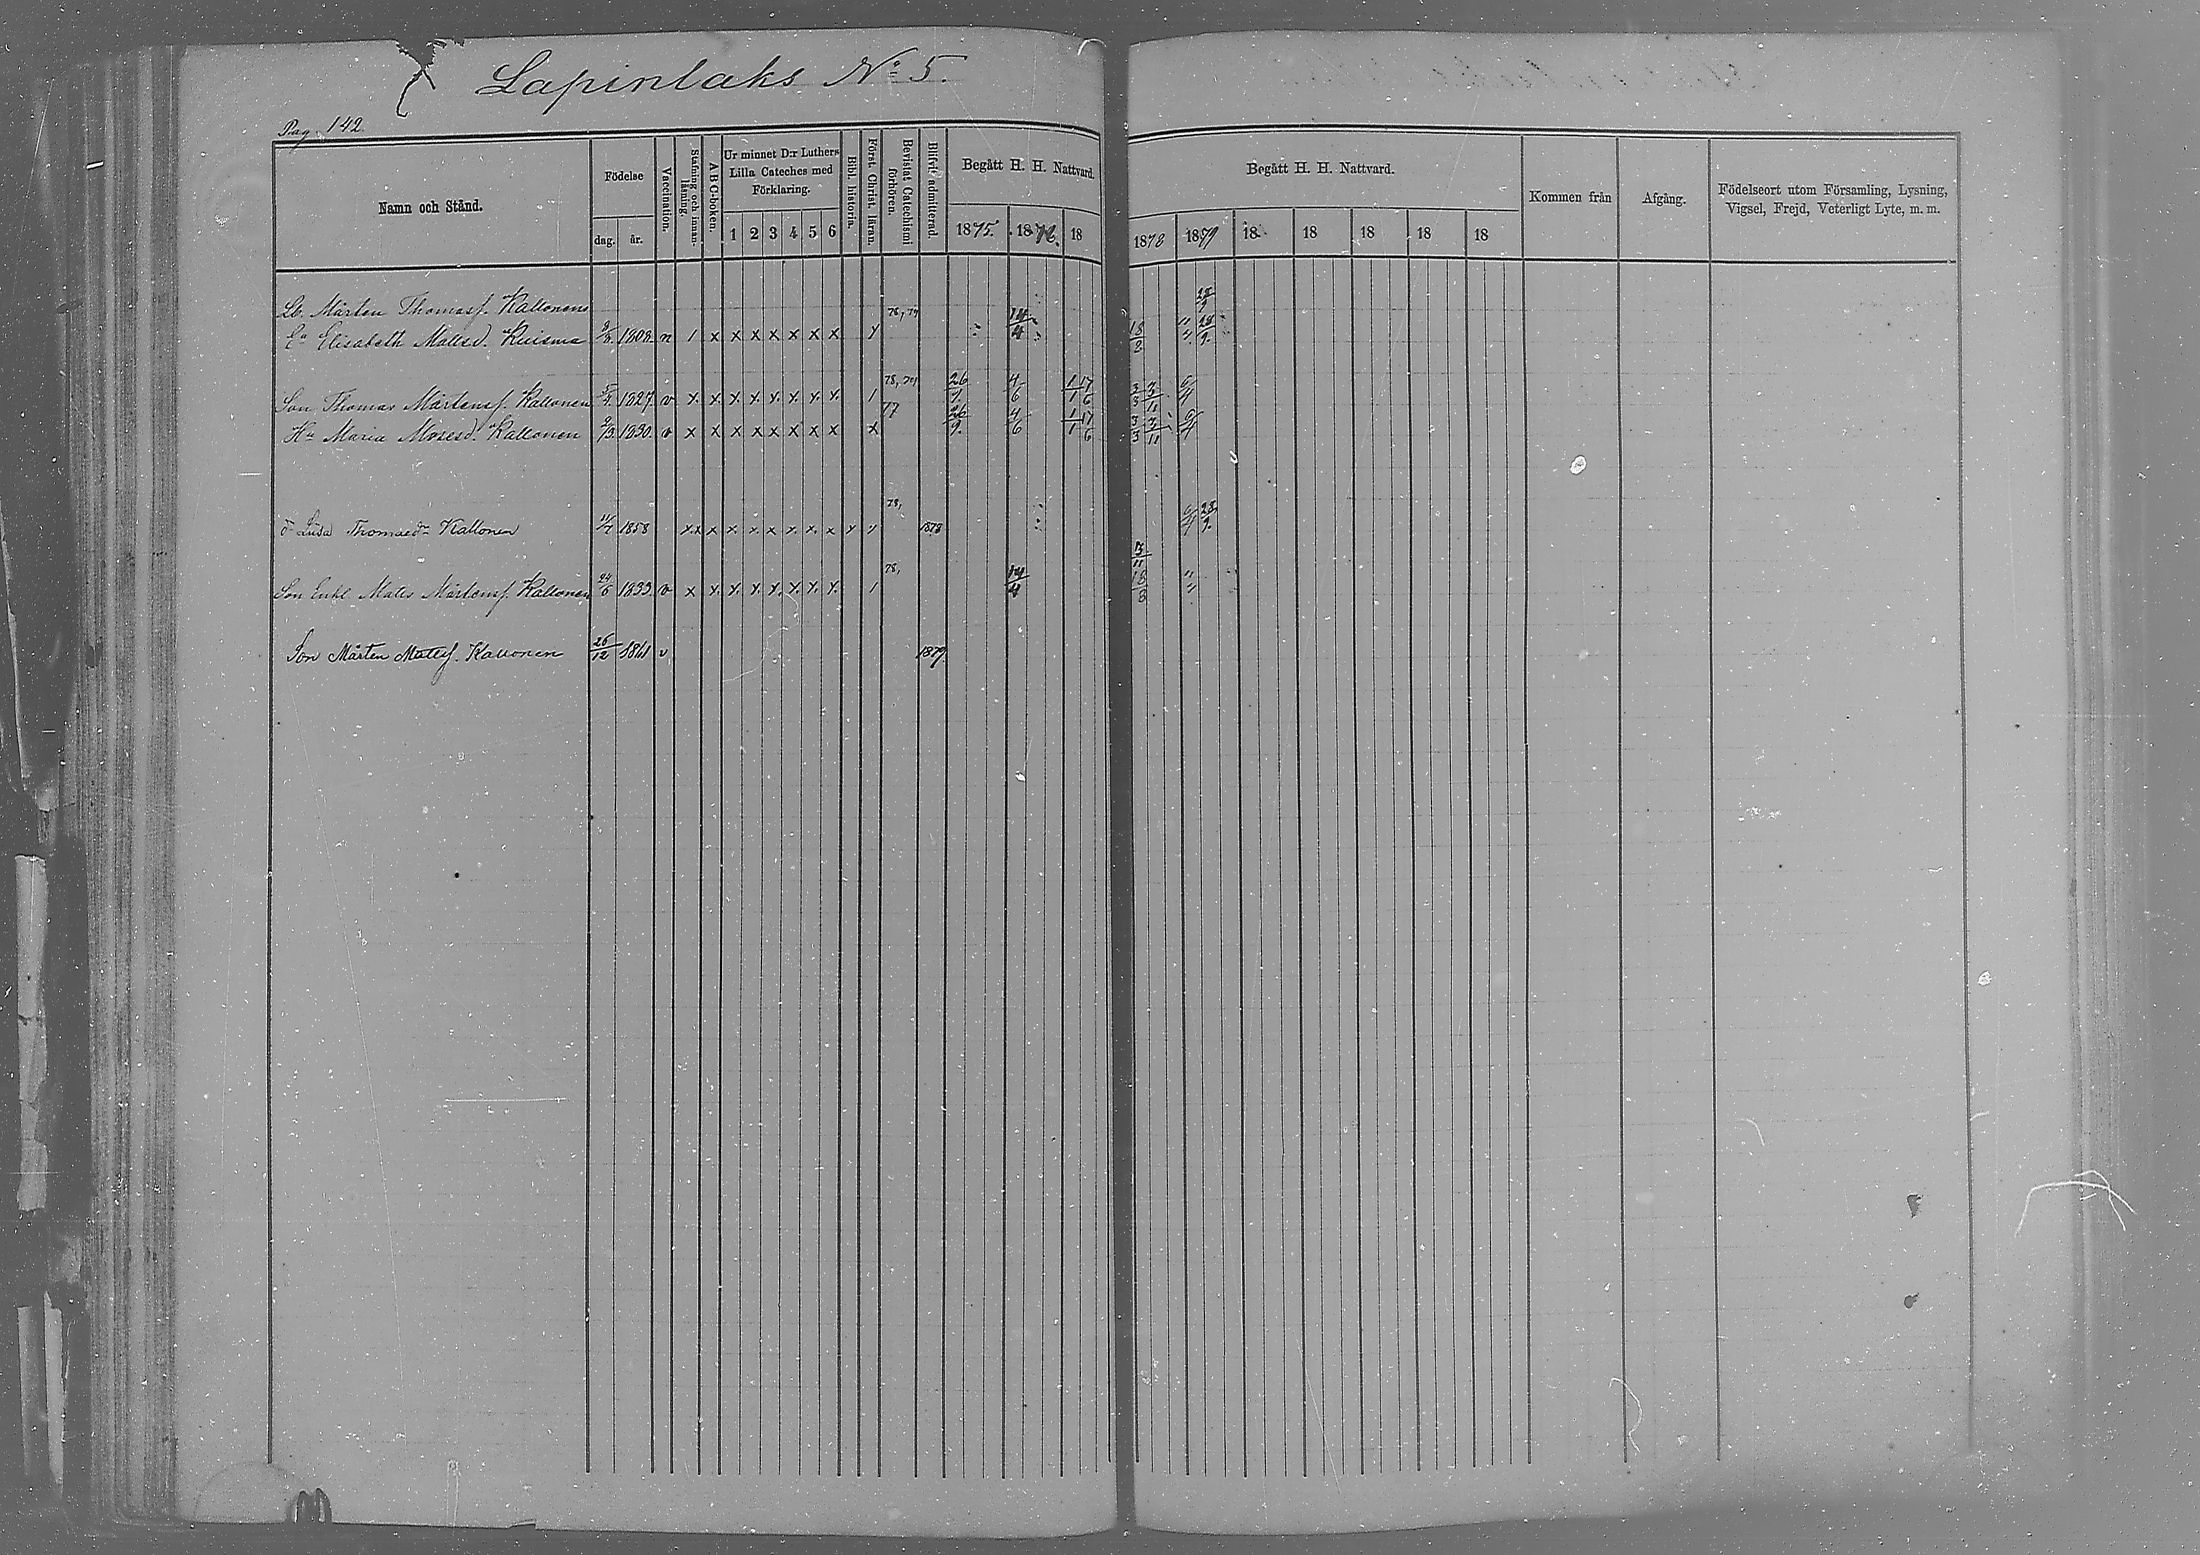 Lapinlaks No 5.
Pag. 142.
Namn och Stånd.
Födelse
dag. år.
Vaccination.
Stafning och innan-läsning.
A B C-boken.
Ur minnet D:r Luthers Lilla Cateches med Förklaring.
1 2 3 4 5 6
Bibl. historia.
Först. Christ. läran.
Bevistat Catechismi förhören.
Blifvit admitterad.
Begått H. H. Nattvard.
1875. 1876. 18
Begått H. H. Nattvard.
1878 1879 18 18 18 18 18
Kommen från
Afgång.
Födelseort utom Församling, Lysning, Vigsel, Frejd, Veterligt Lyte, m. m.
Lb. Mårten Thomasf. Kallonens 28/9
Ea Elisabeth Matsd. Kuisma 1808 n 1 x x x x x x x 78, 79 14/4 18/8 28/9.
Son Thomas Mårtensf. Kallonen 1827 v x x x x x x x x 1 78, 79 26/9. 4/6 1/1 17/6 3/3 3/11 6/4
Hu Maria Mosesd. Kallonen 9/3 1830 v x x x x x x x x x 77 26/9. 4/6 1/1 17/6 3/3 3/11 6/4
dr Lusa Thomaedr Kallonen 11/7 1858 x x x x x x x x x x 78, 1878 6/4 28/9.
3/11
Son Enkl Matts Mårtensf. Kallonen 24/6 1833 v x x x x x x x x 1 78, 14/4 18/8
Son Mårten Matsf. Kallonen 26/12 1861 v 1879.